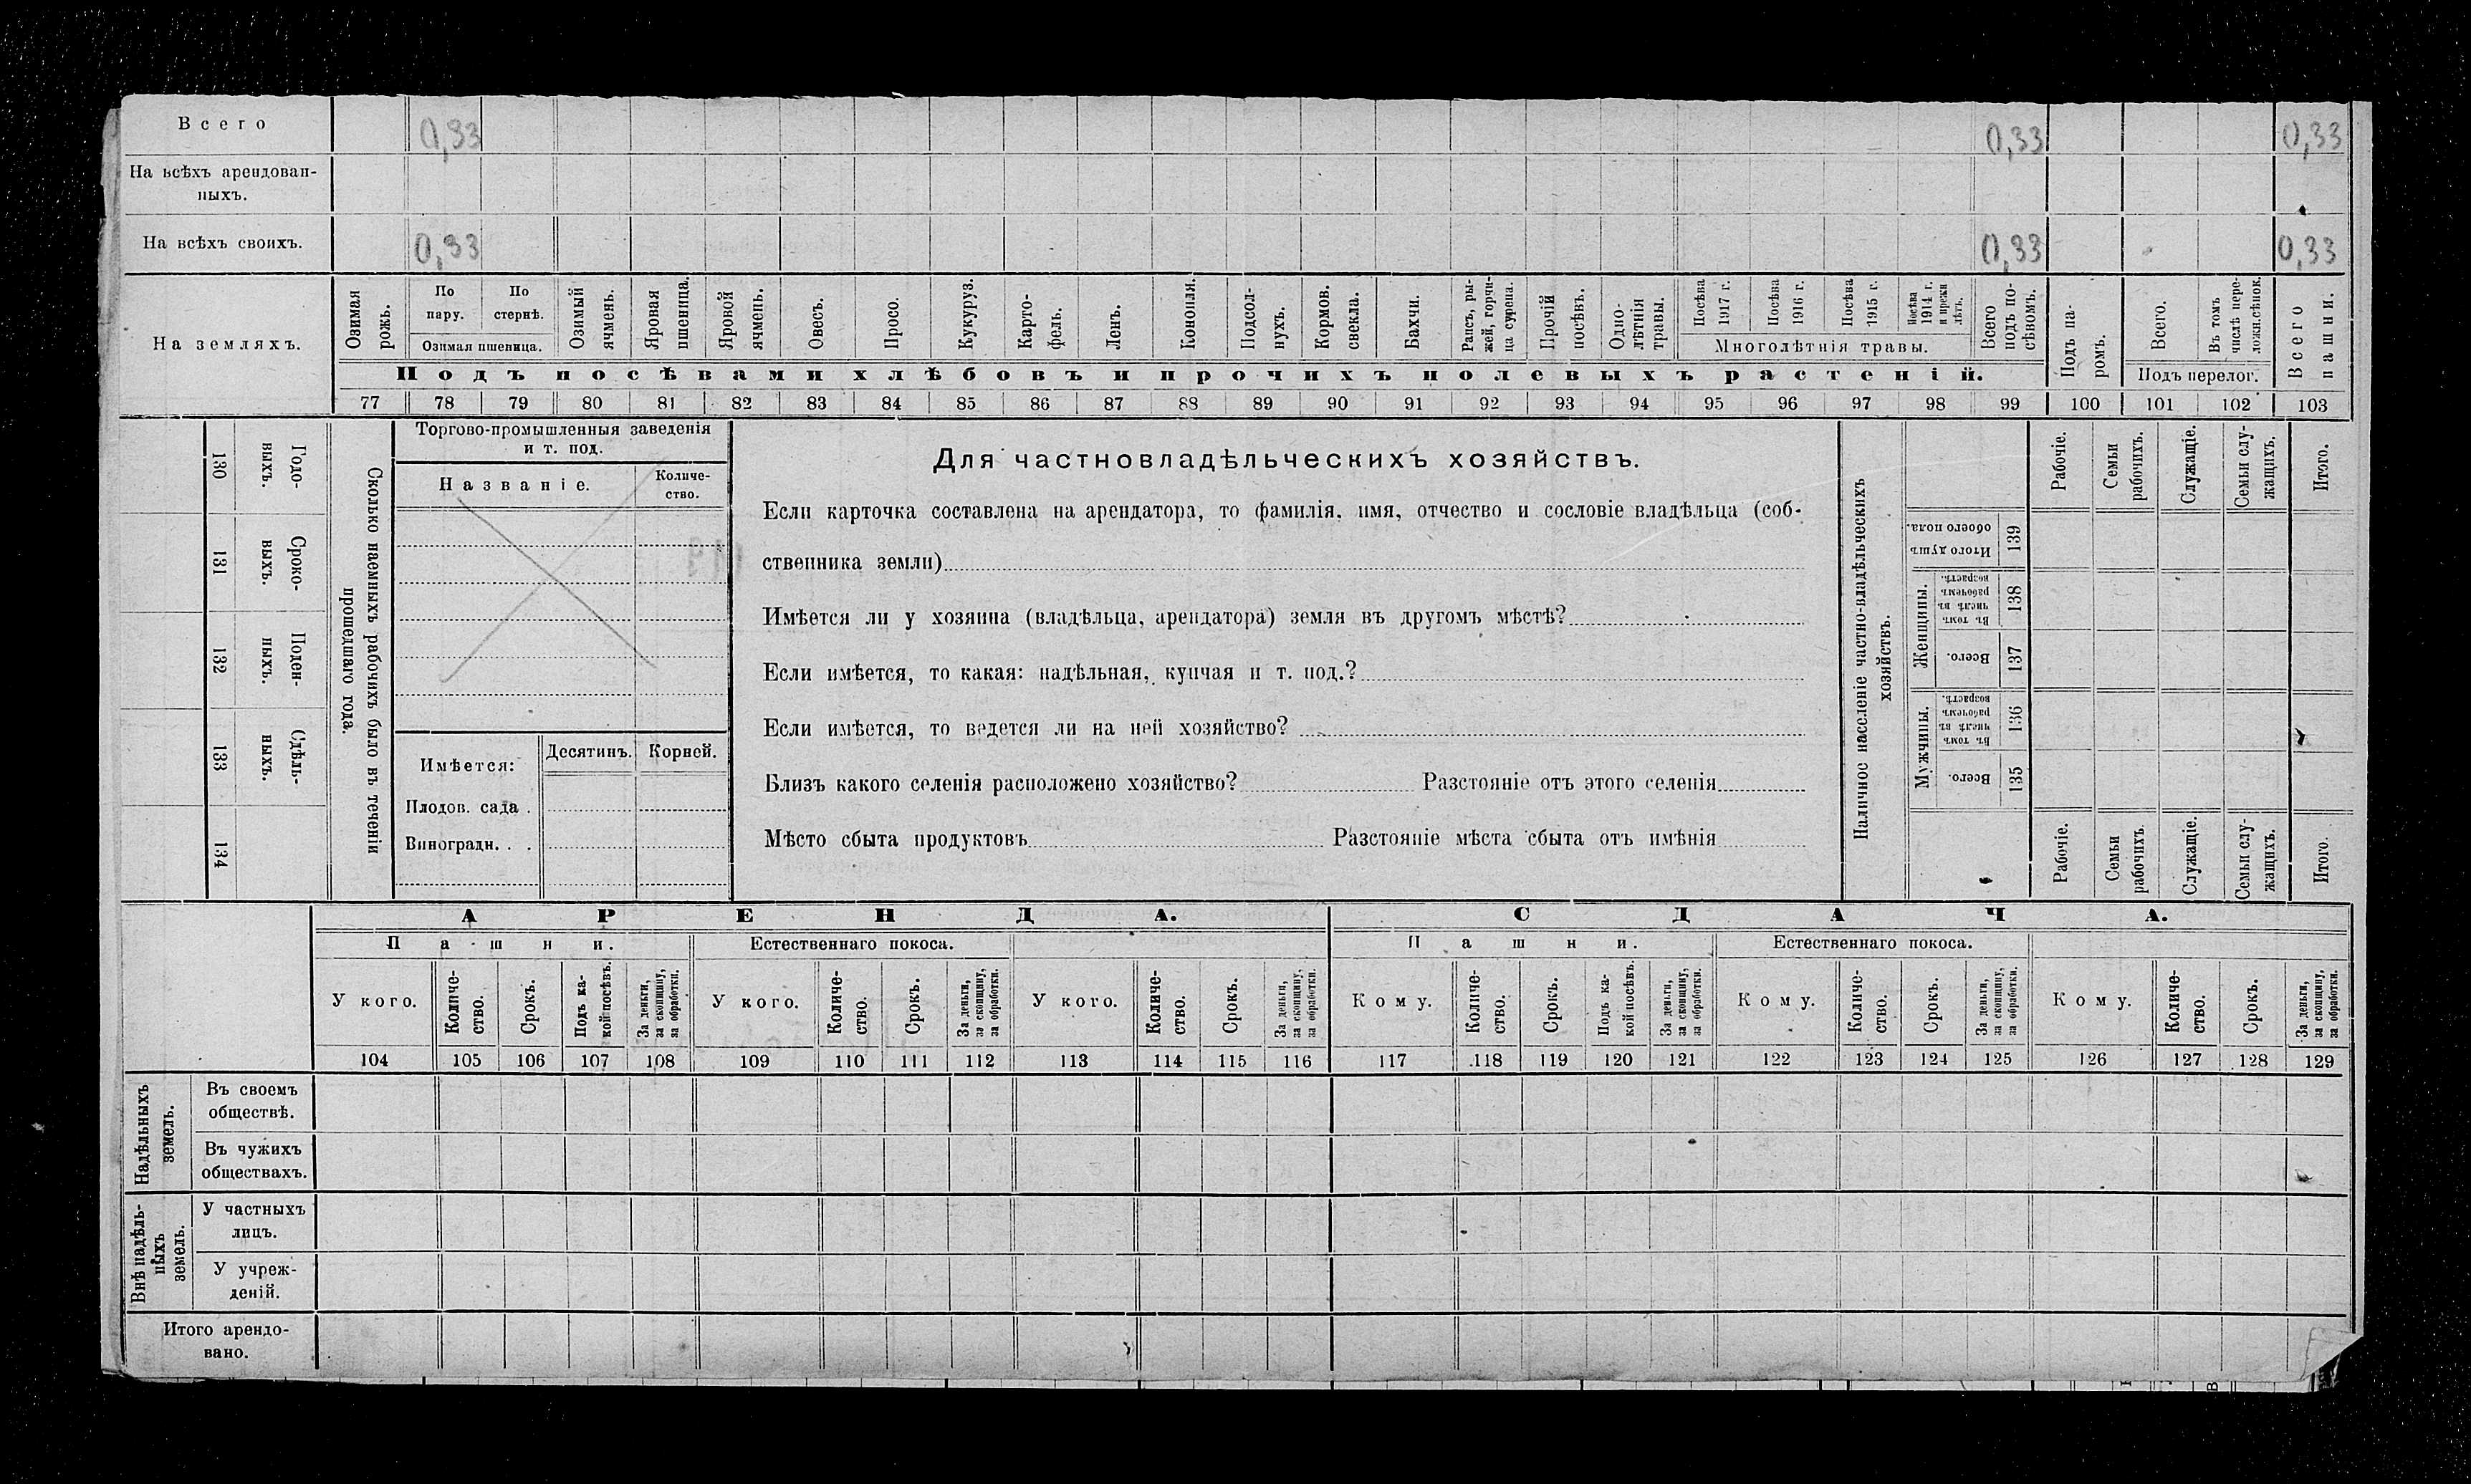 Всего 0,33 0,33 0,33
На всѣхъ арендован-
ныхъ.
На всѣхъ своихъ. 0,33 0,33 0,33
На земляхъ.
Озимая
рожь.
По
пару.
По
стернѣ.
Озимая пшеница.
Озимый
ячмень.
Яровая
пшеница.
Яровой
ячмень.
Овесъ.
Просо.
Кукуруз.
Карто-
фель.
Ленъ.
Конопля.
Подсол-
нухъ.
Кормов.
свекла.
Бахчи.
Рапсъ, ры-
жей, горчи-
ца сурепа.
Прочій
посѣвъ.
Одно-
лѣтнія
травы.
Посѣва
1917 г.
Посѣва
1916 г.
Посѣва
1915 г.
Посѣва
1914 г.
и прежн
лѣтъ.
Многолѣтнія травы.
Всего
подъ по-
сѣвомъ.
Подъ па-
ромъ.
Всего.
Въ томъ
числѣ пере-
ложн.сѣнок.
Подъ перелог.
Всего
пашни.
Подъ посѣвами хлѣбовъ и прочихъ полевыхъ растеній.
77 78 79 80 81 82 83 84 85 86 87 88 89 90 91 92 93 94 95 96 97 98 99 100 101 102 103
Сколько наемныхъ рабочихъ было въ теченіи
прошедшаго года.
Годо-
выхъ.
130
Сроко-
выхъ.
131
Поден-
ныхъ.
132
Сдѣль-
ныхъ.
133
134
Торгово-промышленныя заведенія
и т. под.
Названіе.
Количе-
ство.
Имѣется:
Десятинъ.
Корней.
Плодов. сада .
Виноградн. . .
Для частновладѣльческихъ хозяйствъ.
Если карточка составлена на арендатора, то фамилія, имя, отчество и сословіе владѣльца (соб-
ственника земли)
Имѣется ли у хозяина (владѣльца, арендатора) земля въ другомъ мѣстѣ?
Если имѣется, то какая: надѣльная, купчая и т. под.?
Если имѣется, то ведется ли на ней хозяйство?
Близъ какого селенія расположено хозяйство? Разстояніе отъ этого селенія
Мѣсто сбыта продуктовъ Разстояніе мѣста сбыта отъ имѣнія
Наличное населеніе частно-владѣльческихъ
хозяйствъ.
Рабочіе.
Семьи
рабочихъ.
Служащіе.
Семьи слу-
жащихъ.
Итого.
Итого душъ
обоего пола.
139
Женщины.
Въ томъ
числѣ въ
рабочемъ
возрастѣ.
138
Всего.
137
Мужчины.
Въ томъ
числѣ въ
рабочемъ
возрастѣ.
136
Всего.
135
Рабочіе.
Семьи
рабочихъ.
Служащіе.
Семьи слу-
жащихъ.
Итого.
АРЕНДА. СДАЧА.
Пашни. Естественнаго покоса. Пашни. Естественнаго покоса.
У кого.
Количе-
ство.
Срокъ.
Подъ ка-
кой посѣвъ.
За деньги,
за скопщину,
за обработки.
У кого.
Количе-
ство.
Срокъ.
За деньги,
за скопщину,
за обработки.
У кого.
Количе-
ство.
Срокъ.
За деньги,
за скопщину,
за обработки.
Кому.
Количе-
ство.
Срокъ.
Подъ ка-
кой посѣвъ.
За деньги,
за скопщину,
за обработки.
Кому.
Количе-
ство.
Срокъ.
За деньги,
за скопщину,
за обработки.
Кому.
Количе-
ство.
Срокъ.
За деньги,
за скопщину,
за обработки.
104 105 106 107 108 109 110 111 112 113 114 115 116 117 118 119 120 121 122 123 124 125 126 127 128 129
Надѣльныхъ
земель.
Въ своемъ
обществѣ.
Въ чужихъ
обществахъ.
Внѣ надѣль-
ныхъ
земель.
У частныхъ
лицъ.
У учреж-
деній.
Итого арендо-
вано.